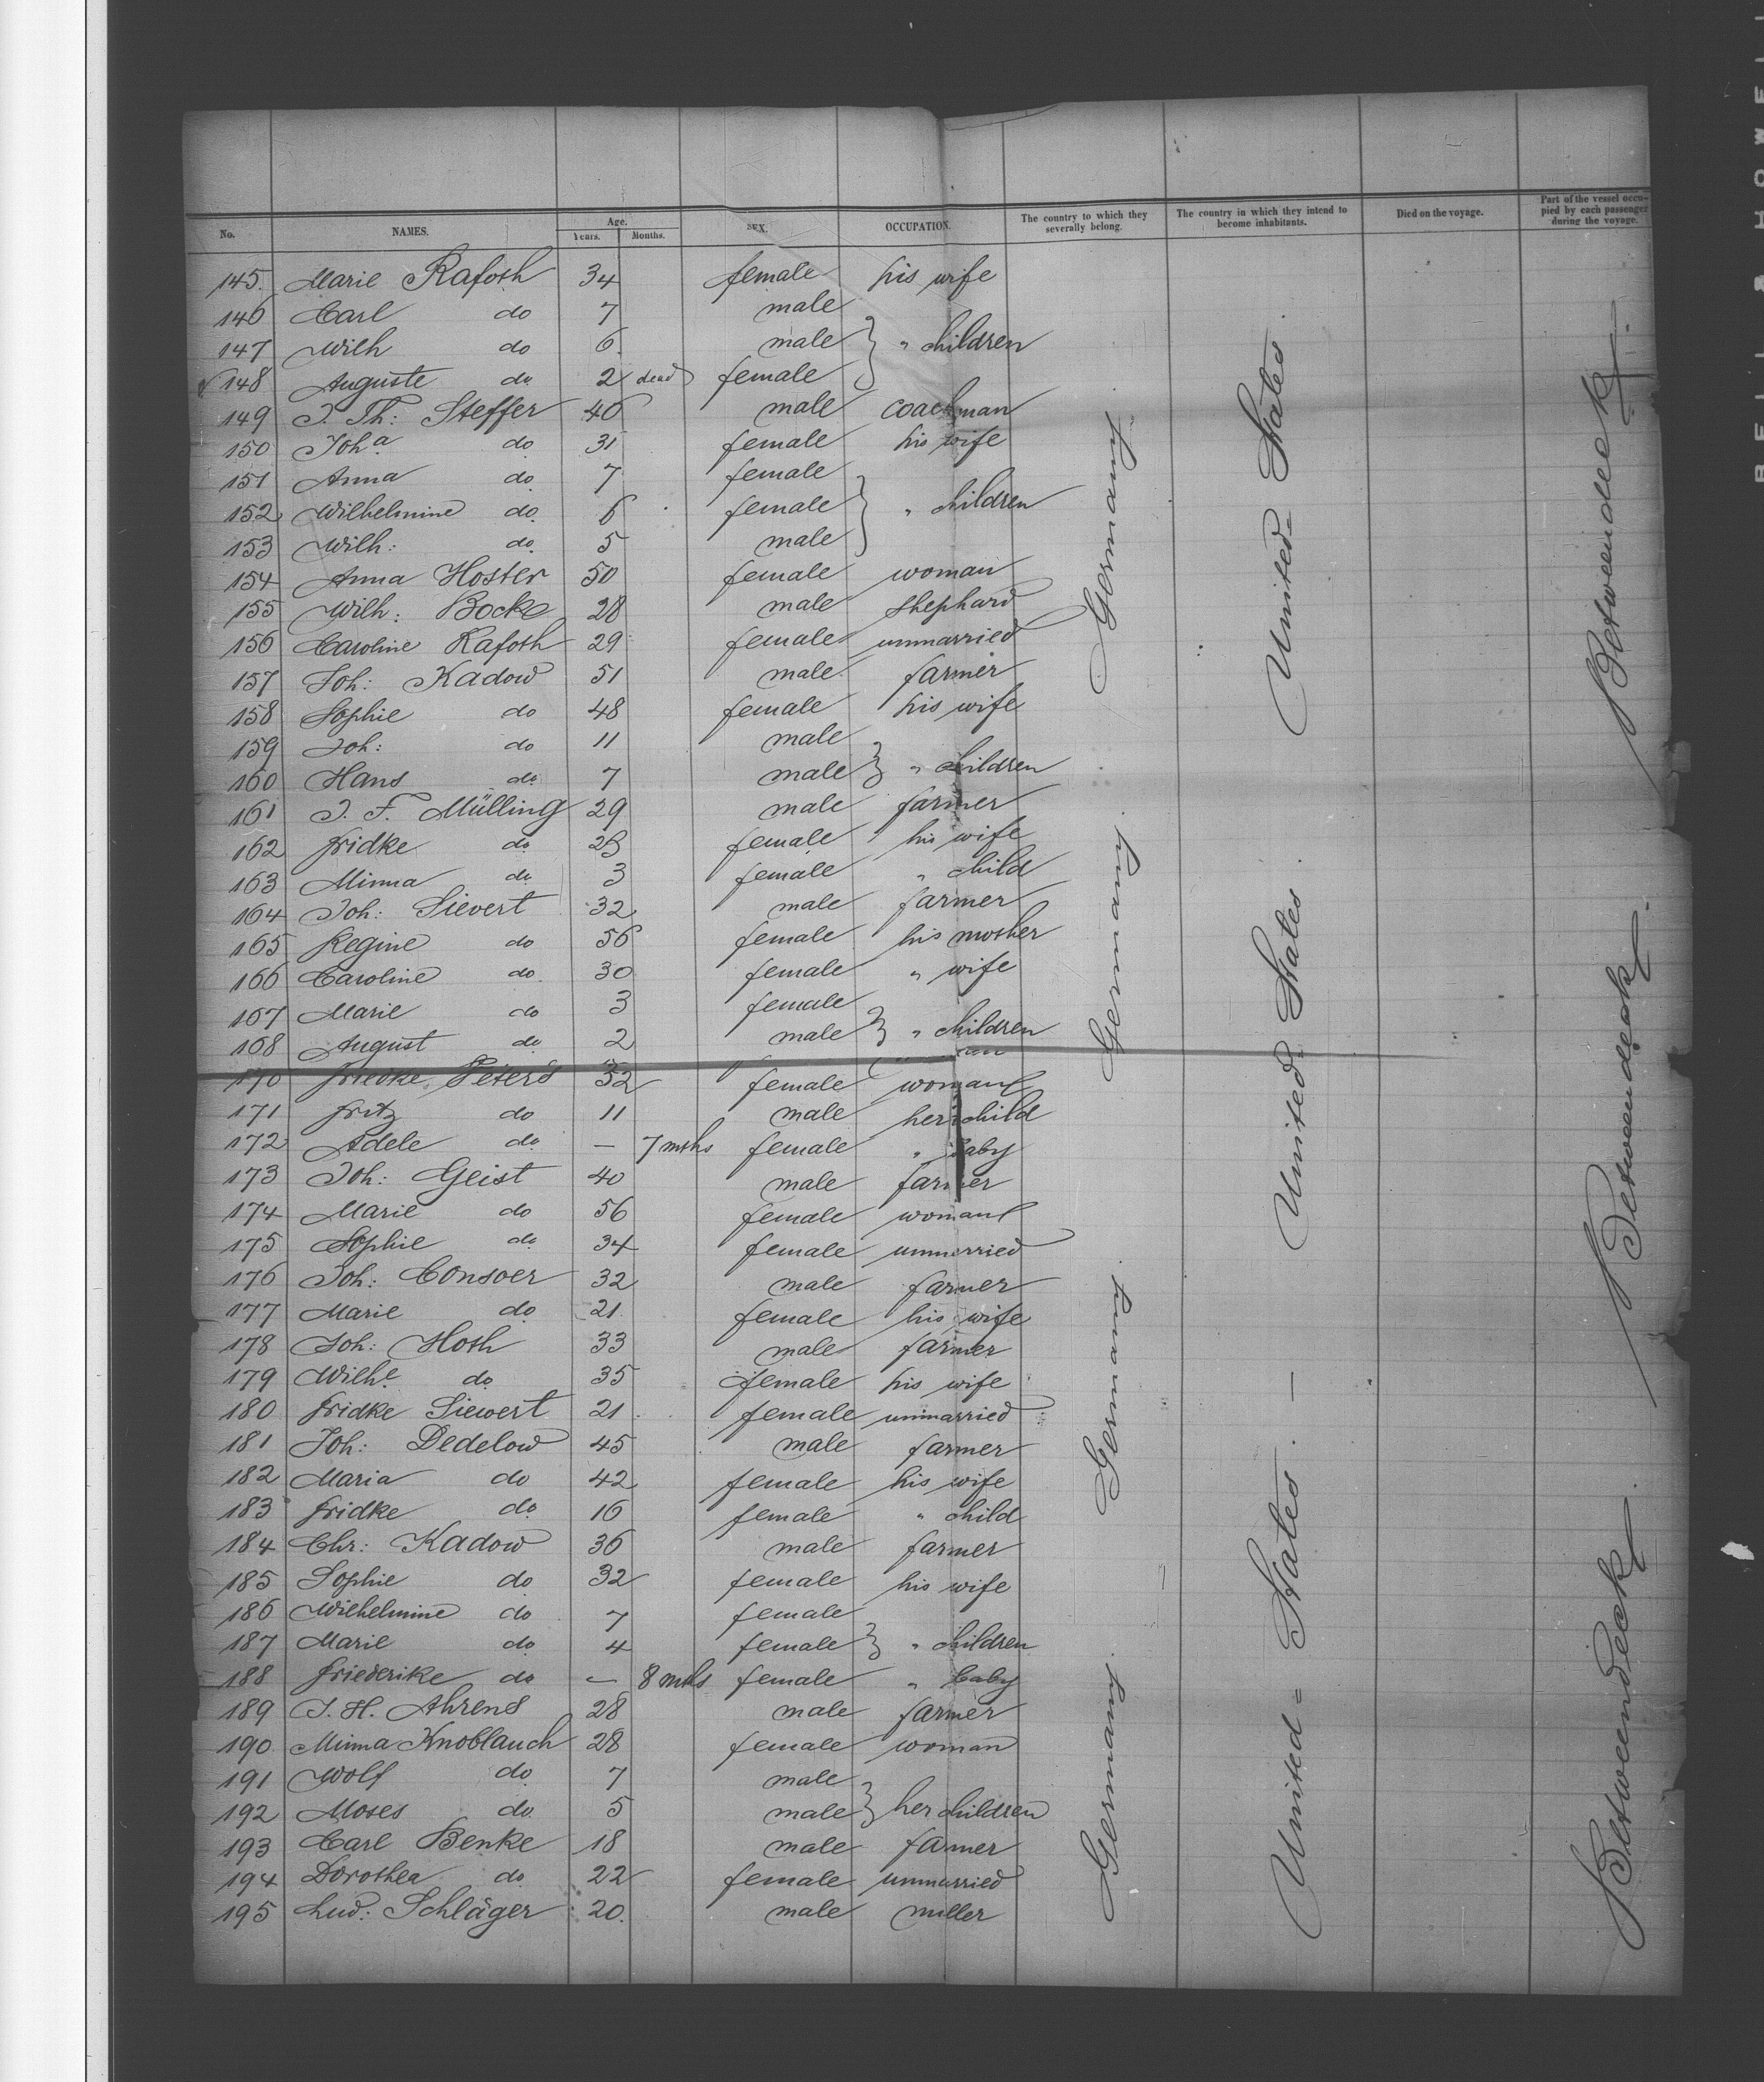 No. NAMES. Age. Years. Months. SEX. OCCUPATION. The country to which they severally belong. The country in which they intend to become inhabitants. Died on the voyage. Part of the vessel occupied by each passenger during the voyage.
145. Marie Rafoth 34 female his wife
146 Carl do 7 male
147 Wilh do 6. male " children
148 Auguste do 2 dead female
149 J. Th: Steffer 46 male coachman
150 Joha do 31 female his wife
151 Anna do 7 female
152 Wilhelmine do. 6 female " children
153 Wilh: do. 5 male
154 Anna Hoster 50 female woman
155 Wilh: Bocke 28 male shephard
156 Caroline Rafoth 29 female unmarried
157 Joh: Kadow 51 male farmer
158 Sophie do 48 female his wife
159 Joh: do 11 male
160 Hans do 7 male " children
161 J. F. Mülling 29 male farmer
162 fridke do female his wife
163 Minna do 3 female " child
164 Joh: Sievert 32 male farmer
165 Regine do 56 female his mother
166 Caroline do. 30 female " wife
167 Marie do 3 female
168 August do 2 male " children
170 friedke Peters 32 female woman
171 fritz do 11 male her child
172 Adele do — 7 mths female " baby
173 Joh: Geist 40 male farmer
174 Marie do 56 female woman
175 Sophie do 34 female unmarried
176 Joh: Consoer 32 male farmer
177 Marie do 21 female his wife
178 Joh: Hoth 33 male farmer
179 Wilhe do 35 female his wife
180 fridke Siewert 21 female unmarried
181 Joh: Dedelow 45 male farmer
182 Maria do 42 female his wife
183 fridke do. 16 female " child
184 Chr: Kadow 36 male farmer
185 Sophie do 32 female his wife
186 Wilhelmine do 7 female
187 Marie do 4 female " children
188 friederike do — 8 mths female " baby
189 J. H. Ahrens 28 male farmer
190 Minna Knoblauch 28 female woman
191 Wolf do 7 male
192 Moses do. 5 male her children
193 Carl Benke 18 male farmer
194 Dorothea do. 22 female unmarried
195 Lud: Schläger 20. male miller
Germany
Germany
Germany
Germany
United States
United States
United States —
Betweendeck
Betweendeck
Betweendeck
BELL & HOWELL